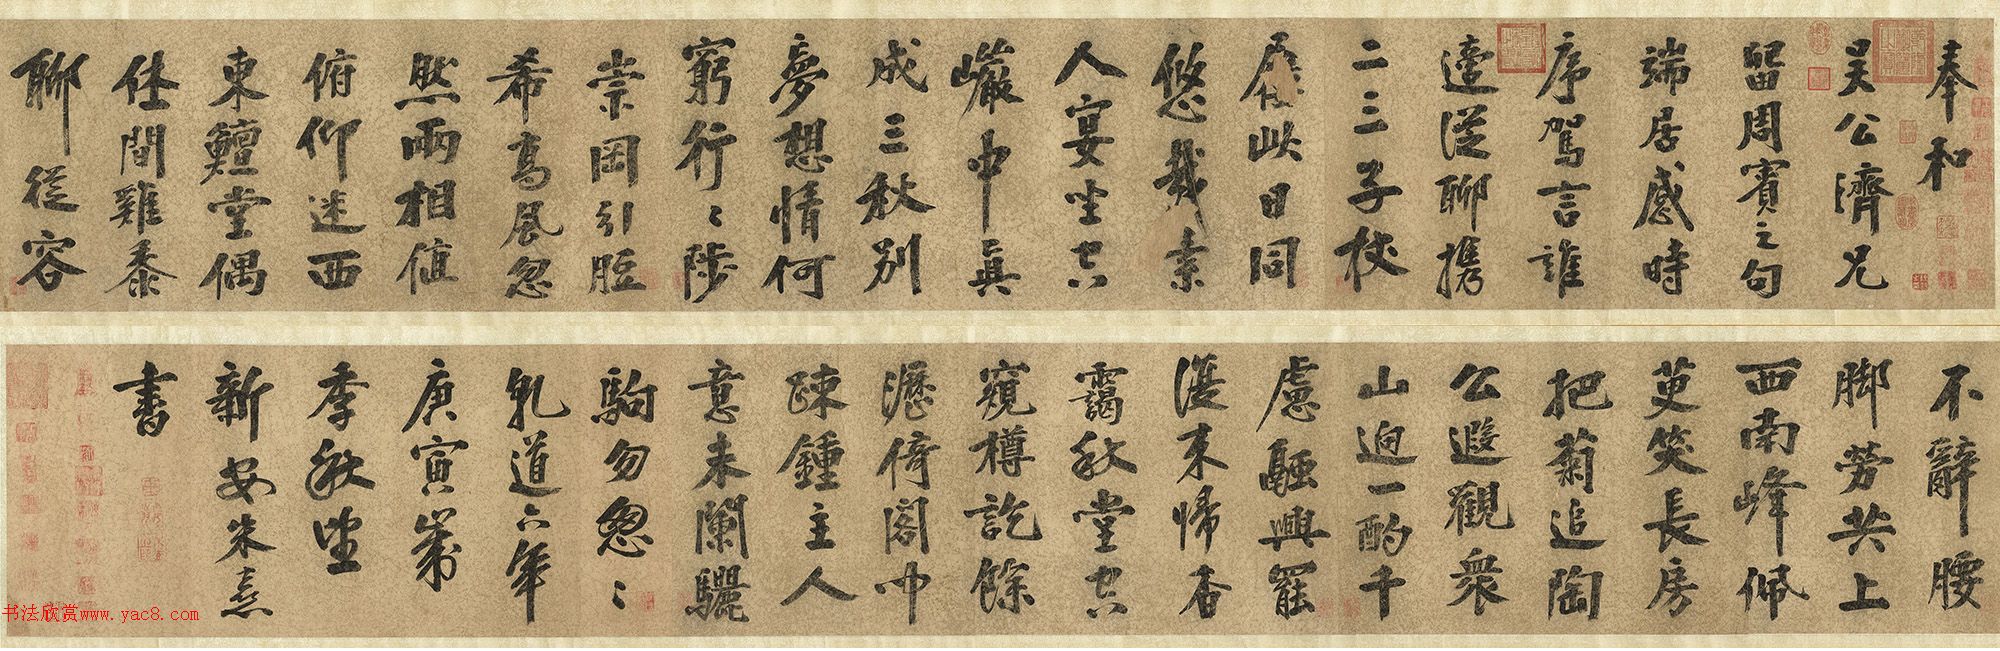 奉和
吴公濟兄
留周賓之句
端居感時
序駕言誰
適從聊攜
二三子杖
屨此日同
悠哉素
人宴坐空
巖中真
成三秋别
夢想情何
窮行〻陟
崇岡引脰
希高風忽
然兩相值
俯仰迷西
東鱣堂偶
休間雞黍
聊從容
不辭腰
脚勞共上
西南峰佩
萸笑長房
把菊追陶
公遐觀衆
山迥一酌千
慮融興罷
復来帰杳
靄秋堂空
窺樽訖餘
瀝倚閣中
疎鍾主人
意未闌驪
駒勿怱〻
乾道六年
庚寅歲
季秋望
新安朱熹
書
书法欣赏www.yac8.com